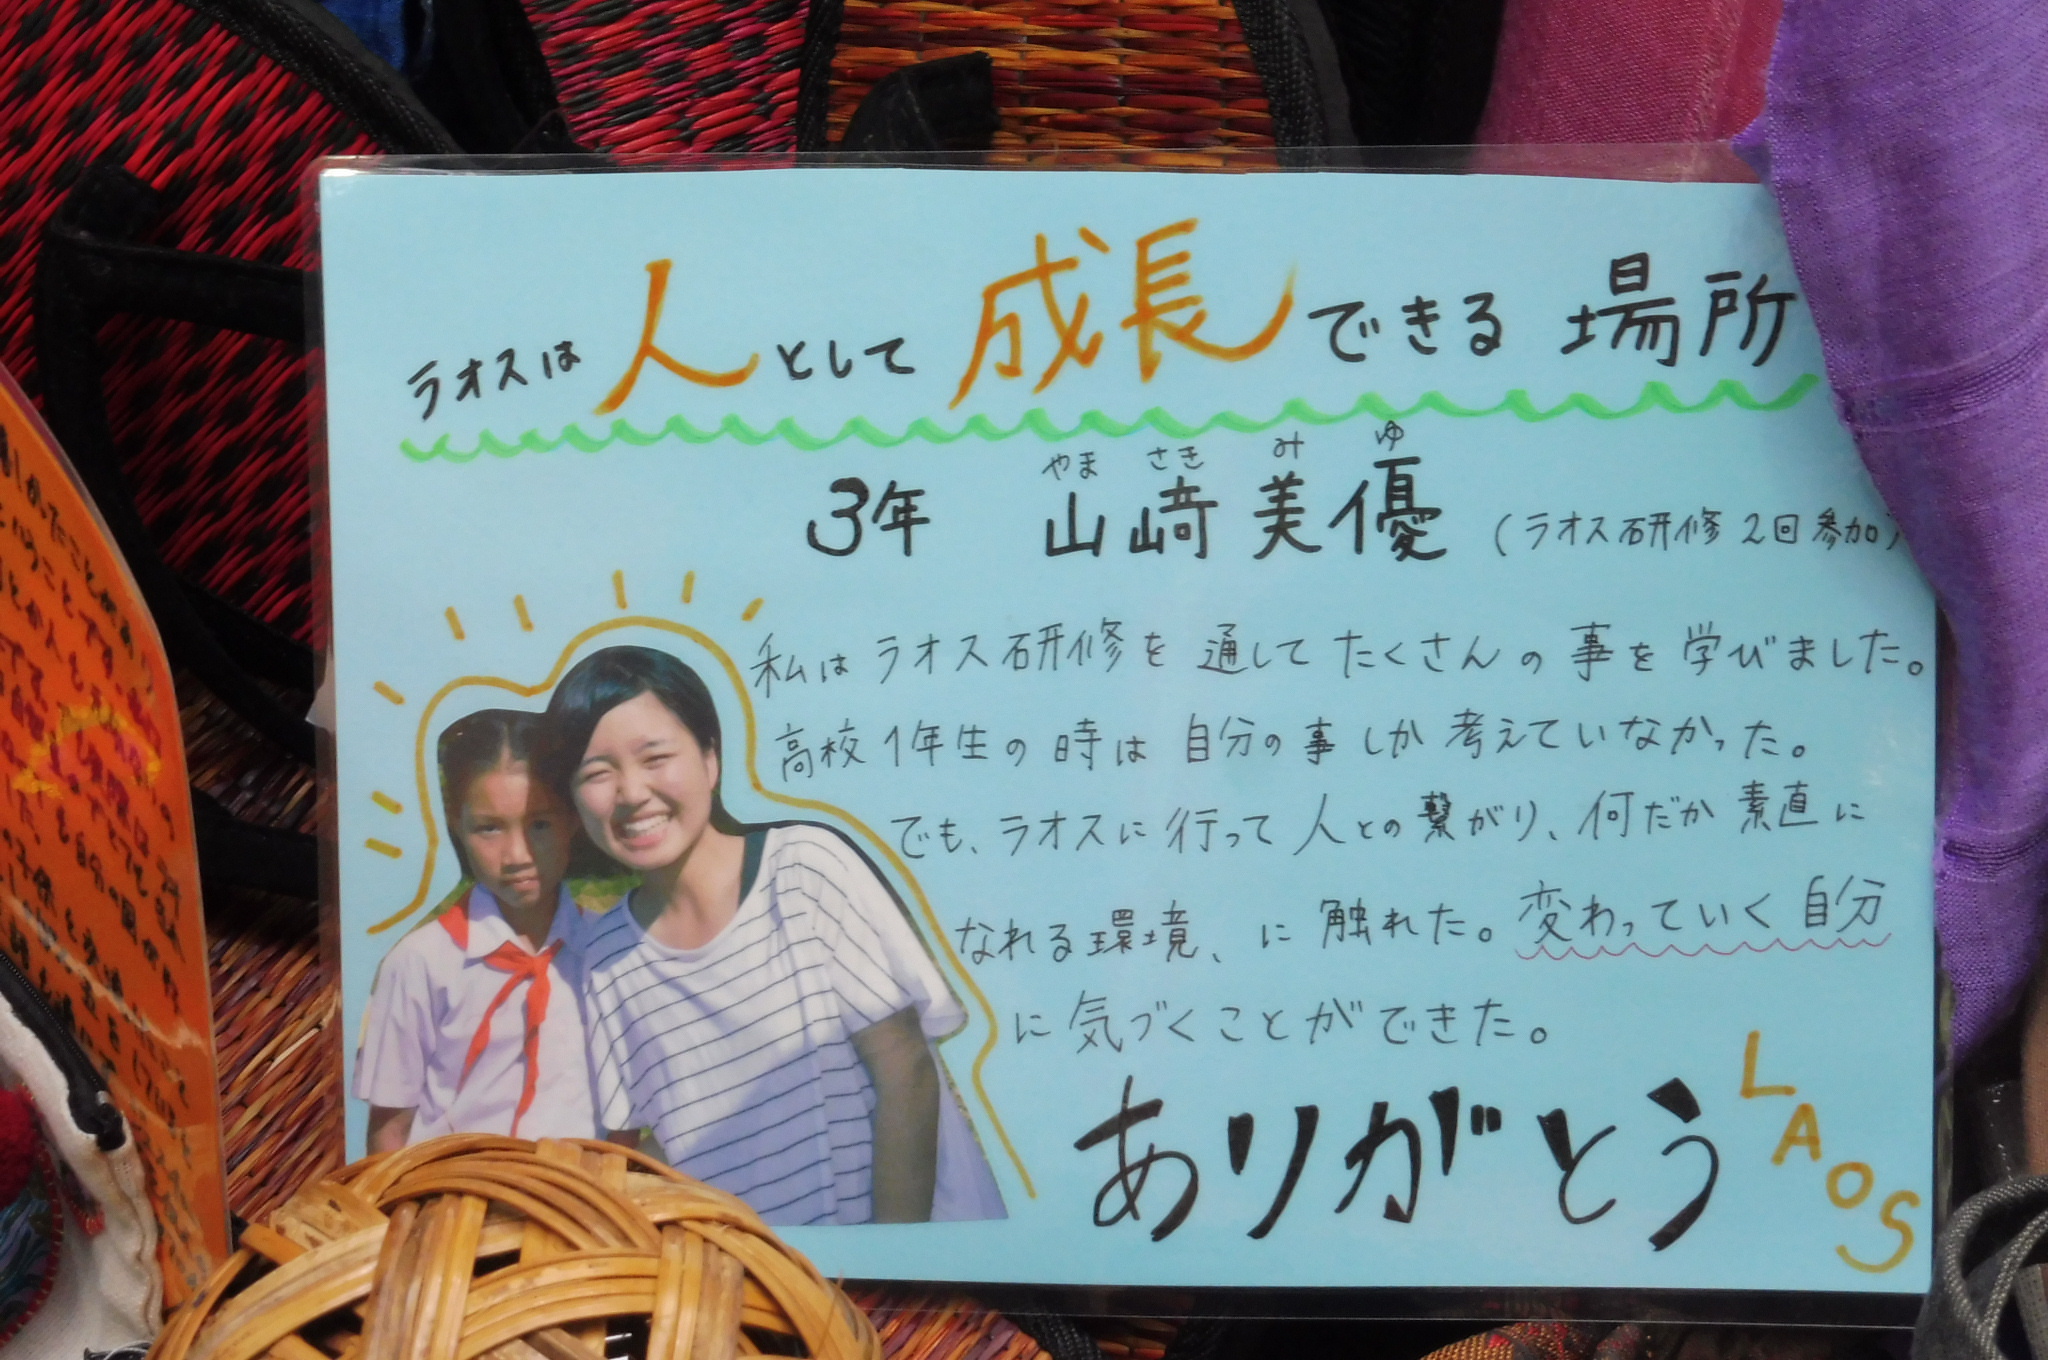 ラオスは人として成長できる場所
やま さき み ゆ
3年 山﨑美優 (ラオス研修2回参加)
私はラオス研修を通してたくさんの事を学びました。
高校1年生の時は自分の事しか考えていなかった。
でも、ラオスに行って人との繋がり、何だか素直に
なれる環境、に触れた。変わっていく自分
に気づくことができた。
ありがとう
LAOS